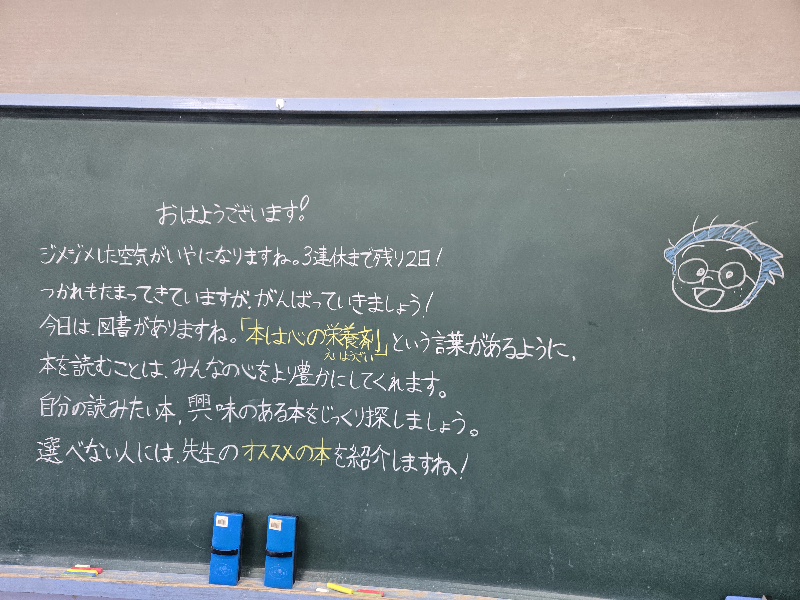 おはようございます!
ジメジメした空気がいやになりますね。3連休まで残り2日!
つかれもたまってきていますが、がんばっていきましょう!
今日は、図書がありますね。「本は心の栄養剤」という言葉があるように、
えいようざい
本を読むことは、みんなの心をより豊かにしてくれます。
自分の読みたい本、興味のある本をじっくり探しましょう。
選べない人には、先生のオススメの本を紹介しますね!